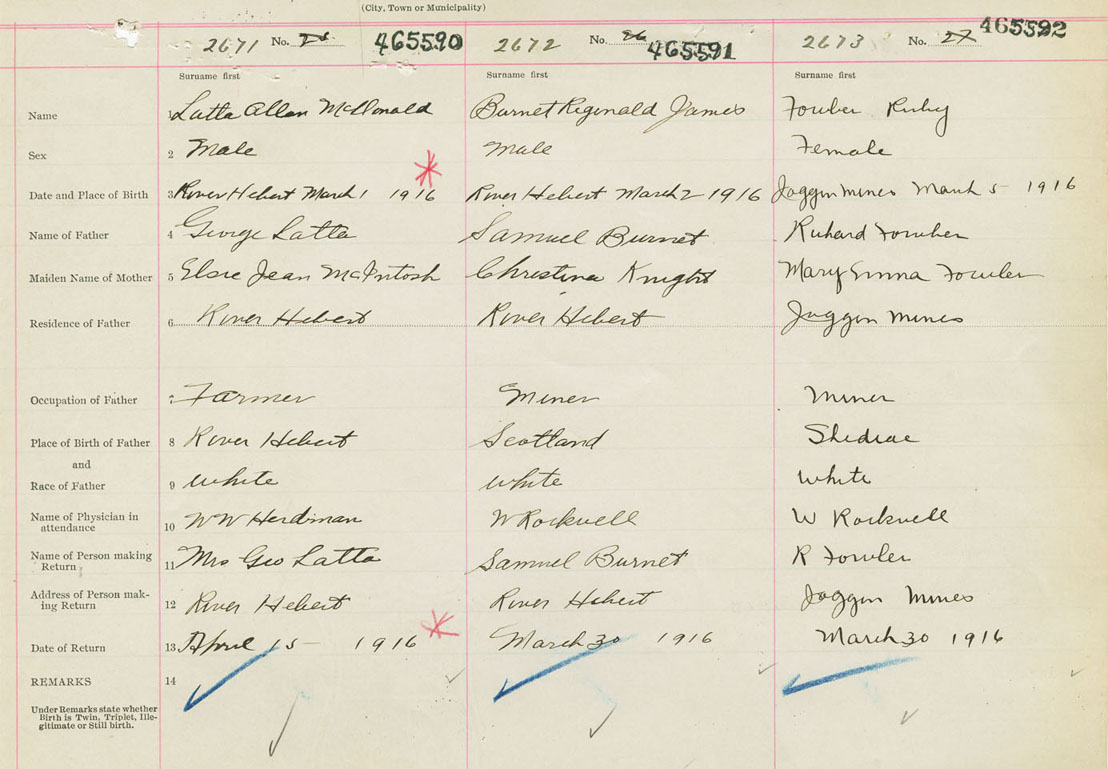 (City, Town or Municipality)
2671 No. 465590 2672 No. 26 465591 2673 No. 27 465592
Surname first Surname first Surname first
Name 1 Latta Allan McDonald Burnet Reginald James Fowler Ruby
Sex 2 Male Male Female
Date and Place of Birth 3 River Hebert March 1 1916 River Hebert March 2 1916 Joggin Mines March 5 1916
Name of Father 4 George Latta Samuel Burnet Richard Fowler
Maiden Name of Mother 5 Elsie Jean McIntosh Christina Knight Mary Emma Fowler
Residence of Father 6 River Hebert River Hebert Joggin Mines
Occupation of Father 7 Farmer Miner Miner
Place of Birth of Father 8 River Hebert Scotland Shediac
and
Race of Father 9 White White White
Name of Physician in
attendance 10 W W Herdman W Rockwell W Rockwell
Name of Person making
Return 11 Mrs Geo Latta Samuel Burnet R Fowler
Address of Person mak-
ing Return 12 River Hebert River Hebert Joggin Mines
Date of Return 13 April 15 1916 March 30 1916 March 30 1916
REMARKS 14
Under Remarks state whether
Birth is Twin, Triplet, Ille-
gitimate or Still birth.